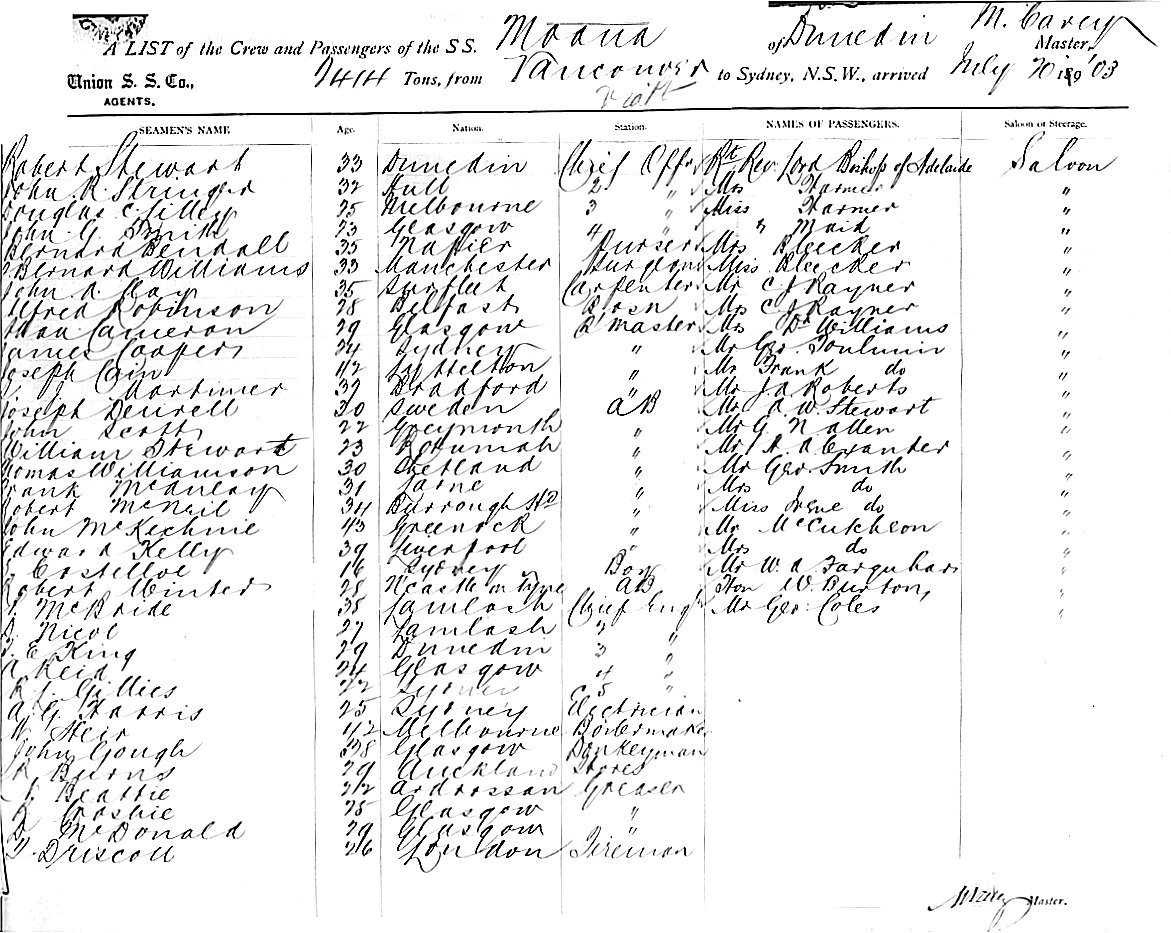 A LIST of the Crew and Passengers of the S.S. Moana of Dunedin M. Carey Master,
Union S. S. Co., 2414 Tons, from Vancouver to Sydney, N.S.W., arrived July 20 189 '03
AGENTS.
SEAMEN'S NAME Age. Nation. Station. NAMES OF PASSENGERS. Saloon or Steerage.
Robert Stewart 33 Dunedin Chief Offr Rt Rev. Lord Bishop of Adelaide Saloon
John R. Stringer 32 Hull 2 " Mrs Harmer "
Douglas C. Lilley 25 Melbourne 3 " Miss Harmer "
John G. Smith 23 Glasgow 4 " " Maid "
Bernard Bendall 35 Napier Purser Mrs Bleecker "
Bernard Williams 33 Manchester Surgeon Miss Bleecker "
John 35 Carpenter Mr C J Rayner "
Alfred Robinson 28 Belfast Bosn Mrs C J Rayner "
Cameron 29 Glasgow Q Master Mrs Dr Williams "
James Cooper 24 Sydney " Mr Geo. Toulmin "
Joseph Cain 42 Lyttelton " Mr Frank do "
Mortimer 32 Bradford " Mr J. A Roberts "
Joseph 30 Sweden AB Mr A W. Stewart "
John Scott 22 Greymouth " Mr G. N Allen "
William Stewart 23 Rotumah " Mr A. A. "
Thomas Williamson 30 Shetland " Mr Geo. Smith "
Frank McAulay 31 Larne " Mrs do "
Robert McNeil 34 Burrough Hd " Miss Irene do "
John McKechnie 43 Greenock " Mr McCutcheon "
Edward Kelly 39 Liverpool " Mrs do "
Costelloe 16 Sydney Boy Mr W. A. Farquhar "
Robert Winter 25 Ncastle on Tyne AB Hon W. Burton, "
McBride 38 Lamlash Chief Engr Mr Geo. Coles "
Nicol 27 Lamlash 2 "
E King 29 Dunedin 3 "
A Reid 24 Glasgow 4 "
R J. Gillies 22 Sydney 5 "
A. G. Harris 25 Sydney Electrician
W Steir 42 Melbourne Boilermaker
John Gough 38 Glasgow Donkeyman
R Burns 29 Auckland Stores
J. Beattie 22 Ardrossan Greaser
Crosbie 25 Glasgow "
D McDonald 29 Glasgow "
Driscoll 26 London Fireman
Master.